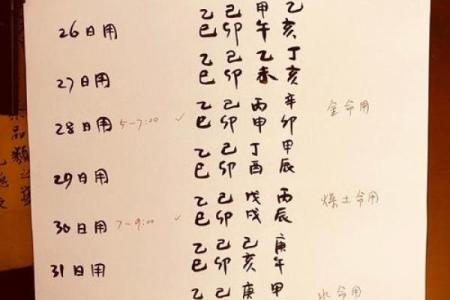 乙 己 甲 乙
26日用 巳 卯 午 亥
乙 己 乙 丁
27日用 巳 卯 亥
乙 己 丙 辛
28日用 5-7:00 ✓ 巳 卯 申 卯 金命用
乙 己 丁 甲
29日用 巳 卯 酉 辰
乙 己 戊 丙
30日用 7-9:00 ✓ 巳 卯 戌 辰 燥土命用
乙 己 己 庚
31日用 巳 卯 亥 午
乙 己 庚 甲
水命用
品類